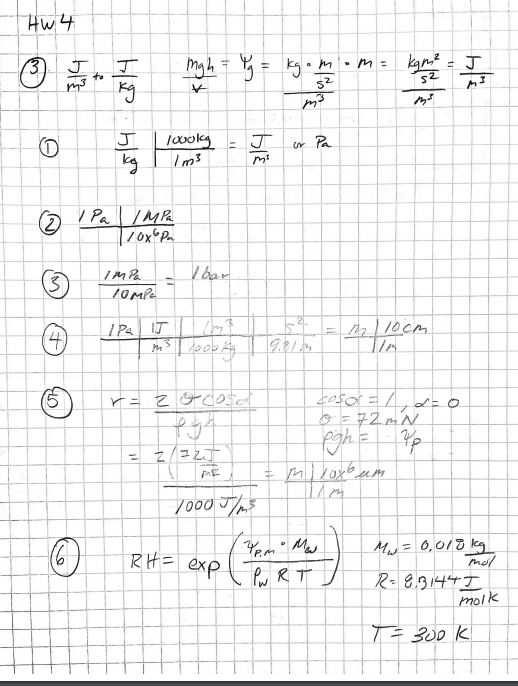 HW 4
③ J/m³ to J/kg   mgh/V = Ψg = (kg · m/s² · m)/m³ = (kgm²/s²)/m³ = J/m³
① J/kg | 1000kg/1m³ = J/m³ or Pa
② 1 Pa | 1MPa/10x⁶Pa
③ 1MPa/10MPa = 1bar
④ 1Pa | 1J/m³ | 1m³/1000kg | s²/9.81m = m | 10cm/1m
⑤ r = 2σcosα/ρgh   cosα = 1, α = 0
σ = 72mN
ρgh = Ψp
= 2(72J/m²)/1000 J/m³ = m | 10x⁶um/1m
⑥ RH = exp(Ψp,m · Mw/Pw R T)   Mw = 0.018 kg/mol
R = 8.3144 J/mol K
T = 300 K